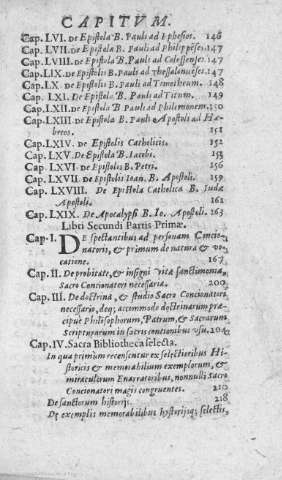 CAPITVM.
Cap. LVI. de Epistola B. Pauli ad Ephesios. 146
Cap. LVII. de Epistola B. Pauli ad Philippẽses. 147
Cap. LVIII. de Epistola B. Pauli ad Colossenses. 147
Cap. LIX. de Epistolis B. Pauli ad Thessalonicẽses. 147
Cap. LX. de Epistolis B. Pauli ad Timotheum. 148
Cap. LXI. de Epistola B. Pauli ad Titum. 149
Cap. LXII. de Epistola B. Pauli ad Philemonem. 150
Cap. LXIII de Epistola B. Pauli Apostoli ad Hæ
breos. 151
Cap. LXIV. de Epistolis Catholicis. 152
Cap. LXV. De Epistola B. Iacobi. 153
Cap. LXVI. de Epistolis B. Petri. 156
Cap. LXVII. de Epistolis Ioan. B. Apostoli. 159
Cap. LXVIII. De Epistola Catholica B. Iudæ
Apostoli. 162
Cap. LXIX. De Apocalypsi B. Io. Apostoli. 163
Libri Secundi Partis Primæ.
Cap. I. DE spectantibus ad personam Concio-
natoris, & primum de natura & vo-
catione. 167
Cap. II. De probitate, & insigni vitæ sanctimonia,
Sacro Concionatori necessaria. 200
Cap. III. De doctrina, & studio Sacro Concionatori
necessario, deq; accommodo doctrinarum præ
cipue Philosophorum, Patrum, & Sacrarum
Scripturarum in sacris contionibus vsu. 204
Cap. IV. Sacra Bibliotheca selecta.
In qua primum recensentur ex selectioribus Hi-
storicis & memorabilium exemplorum, &
miraculorum Enarratoribus, nonnulli Sacro
Concionatori magis congruentes. 210
De sanctorum historijs. 218
De exemplis memorabilibus hystorijsq; selectis,